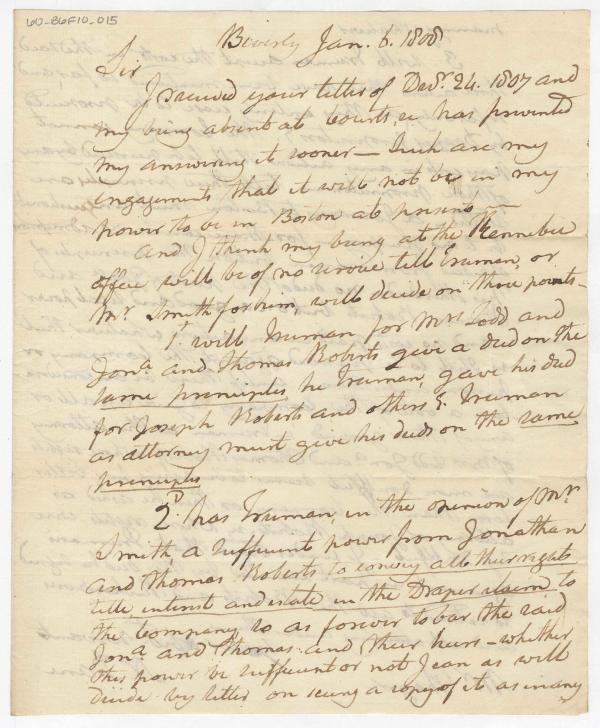 60-B6F10-015
Beverly Jan. 6. 1808
Sir
I received your letter of Decr. 24. 1807 and
my being absent at Courts, &c has prevented
my answering it sooner — Such are my
engagements that it will not be in my
power to be in Boston at present —
And I think my being at the Kennebec
office will be of no service till Truman, or
Mr Smith for him, will decide on three points —
1st will Truman for Mrs Todd and
Jona. and Thomas Roberts give a deed on the
same principles he, Truman, gave his deed
for Joseph Roberts and others? Truman
as attorney must give his deeds on the same
principles
2d. has Truman, in the opinion of Mr
Smith, a sufficient power from Jonathan
and Thomas Roberts to convey all their right
title, interest and estate in the Draper claim to
the Company so as forever to bar the said
Jona. and Thomas and their heirs — whether
this power be sufficient or not I can as well
decide by letter on seing a copy of it as in any